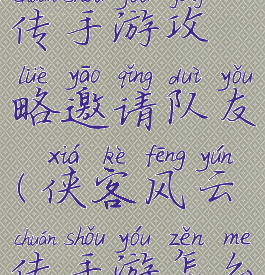 chuán shǒu yóu gōng
传手游攻
lüè yāo qǐng duì yǒu
略邀请队友
xiá kè fēng yún
（侠客风云
chuán shǒu yóu zěn me
传手游怎么